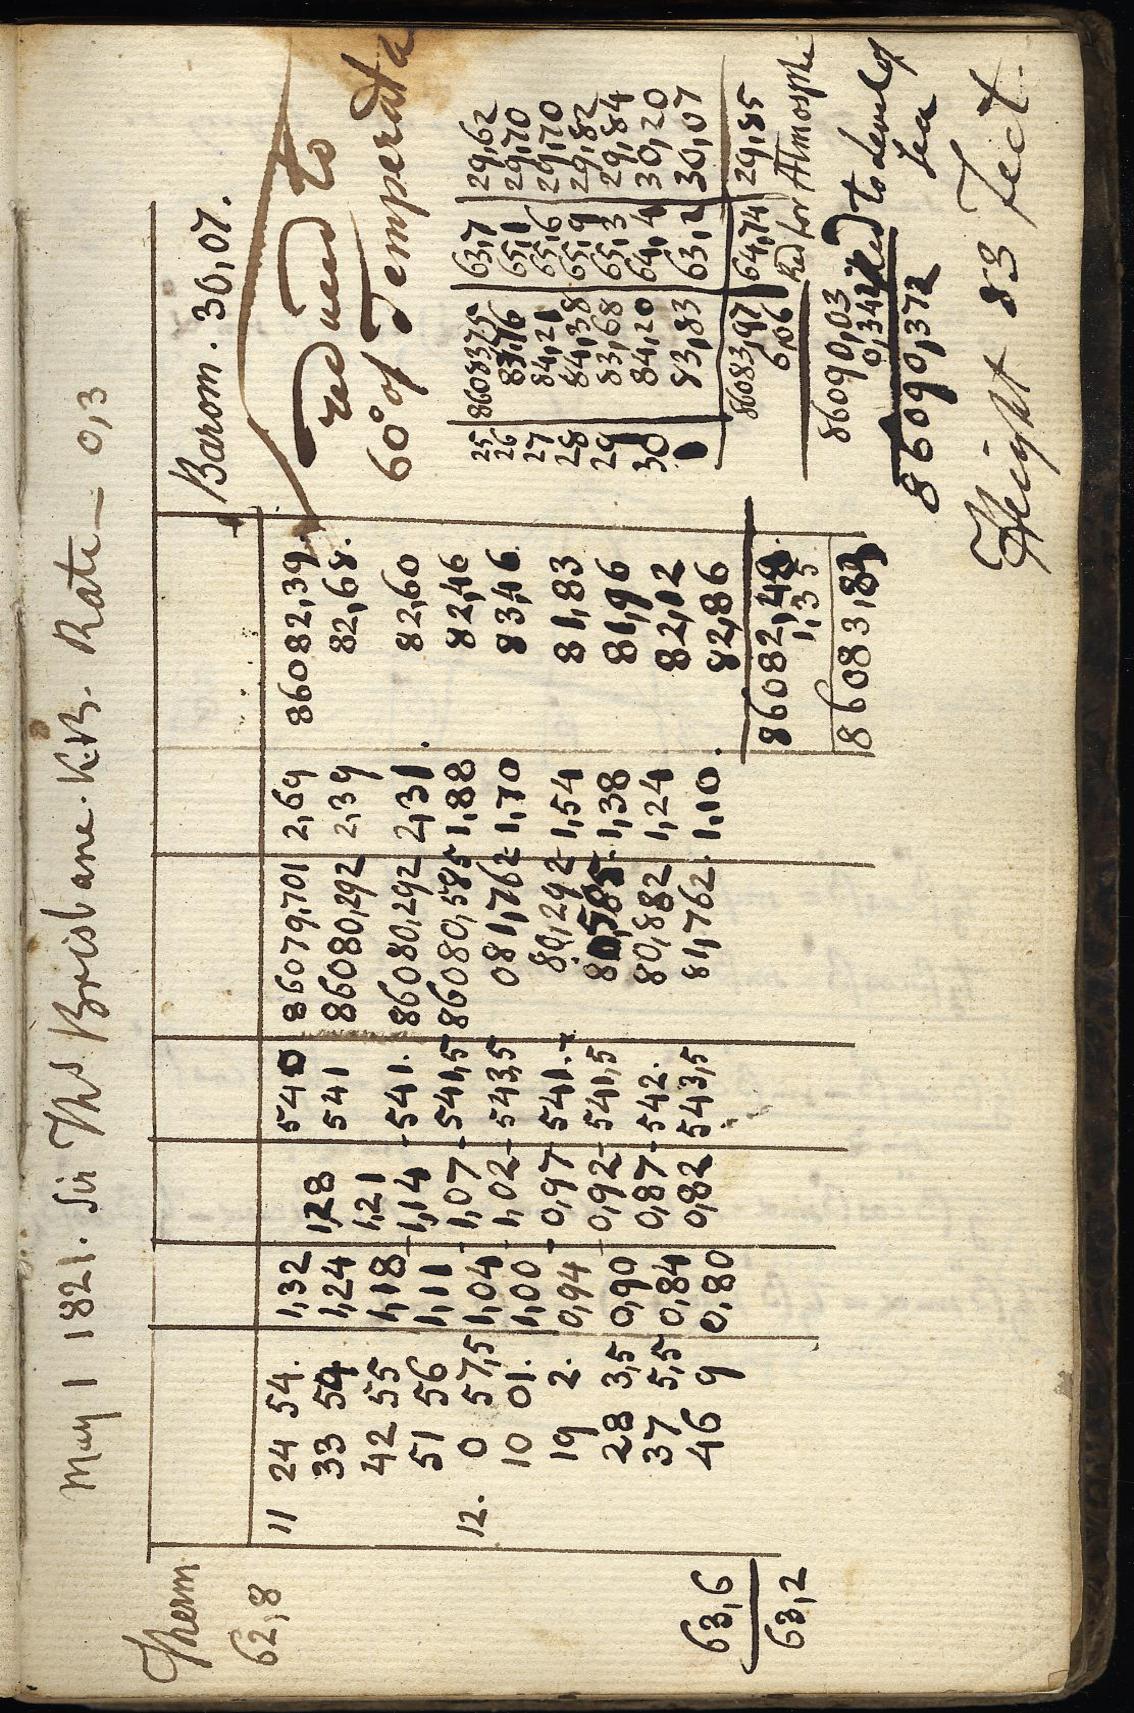 May 1 1821. Sir Ths Brisbane. K.B. Rate – 0,3
Therm
62,8
63,6
63,2
11 24 54. 1,32
33 54 1,24 1,28 540 86079,701 2,69 86082,39
42 55 1,18 1,21 541 86080,292 2,39 82,68.
51 56 1,11 1,14 541. 86080,292 2,31 82,60
12. 0 57,5 1,04 1,07 541,5 86080,585 1,88 82,46
10 01. 1,00 1,02 543,5 081,762 1,70 83,46
19 2. 0,94 0,97 541. 80,292 1,54 81,83
28 3,5 0,90 0,92 541,5 80,585 1,38 81,96
37 5,5 0,84 0,87 542. 80,882 1,24 82,12
46 9 0,80 0,82 543,5 81,762. 1,10 82,86
86082,48
1,35
86083,83
Barom. 30,07.
reduced to
60° of Temperata
25 86083,75 63,7 29,62
26 83,76 65,1 29,70
27 84,21 65,6 29,70
28 84,38 65,9 29,82
29 83,68 65,3 29,84
30 84,20 64,4 30,20
1 83,83 63,2 30,07
86083,97 64,74 29,85
6,06 Red for Atmosphe
86090,03
0,342 Red to Level of
Sea
86090,372
Height 83 Feet.